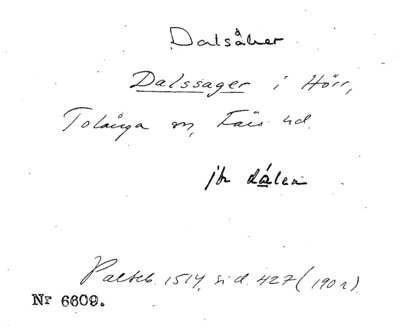 Dalsåker
Dalssager i Hörr,
Tolånga sn, Färs hd.
jfr dálen
Palteb. 1514, sid. 427 (190 r).
Nr 6609.